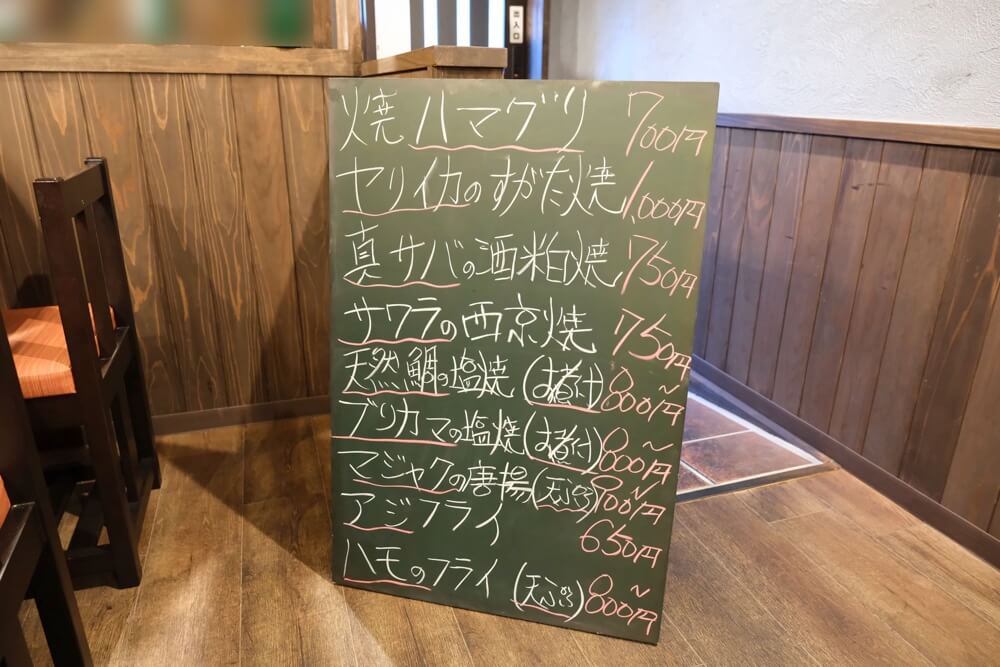 出入口
焼ハマグリ 700円
ヤリイカのすがた焼 1,000円
真サバの酒粕焼 750円
サワラの西京焼 750円
天然鯛の塩焼(又は煮付) 800円〜
ブリカマの塩焼(又は煮付) 800円〜
マジャクの唐揚(天ぷら) 900円〜
アジフライ 650円
ハモのフライ(天ぷら) 800円〜